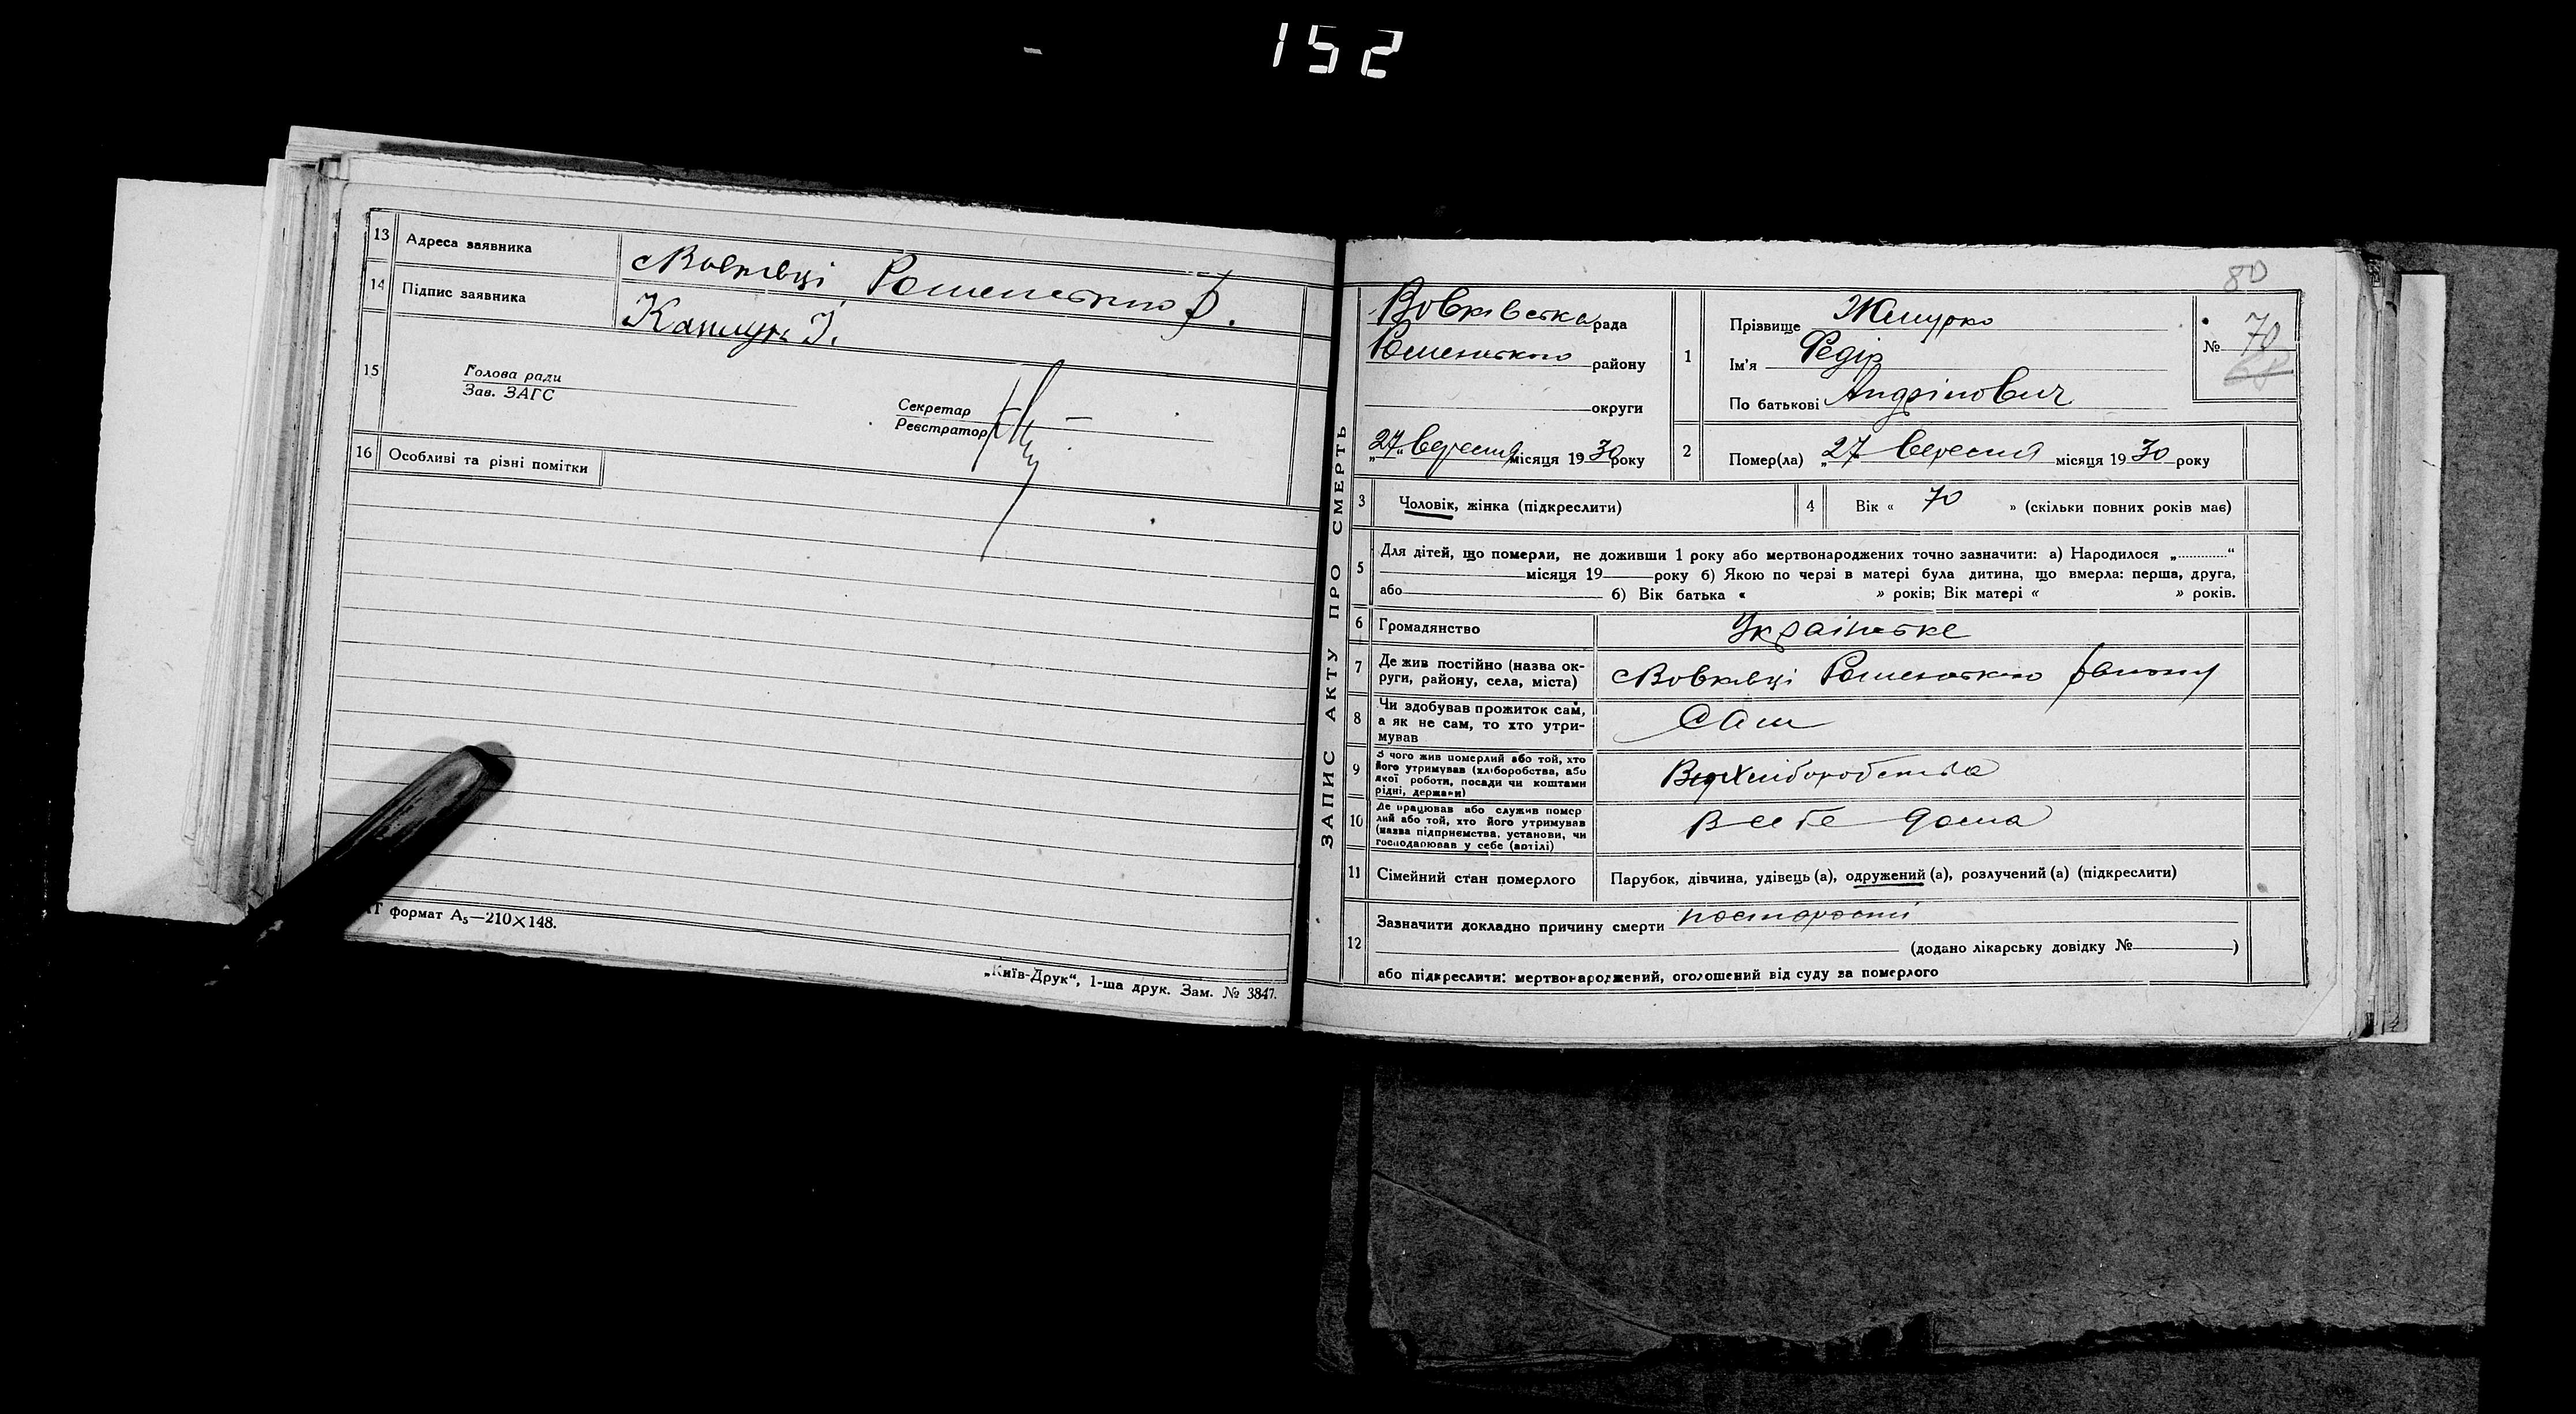 152
13 Адреса заявника Вовківці Роменського р.
14 Підпис заявника
15
Голова ради
Зав. ЗАГС
Секретар
Реєстратор
16 Особливі та різні помітки
формат А5—210×148.
„Київ-Друк“, 1-ша друк. Зам. № 3847.
ЗАПИС АКТУ ПРО СМЕРТЬ
80
Вовківська рада
Роменського району
округи
„27“ вересня місяця 1930 року
1
Прізвище
Ім'я Федір
По батькові Андрійович
№ 70
2 Помер(ла) „27“ вересня місяця 1930 року
3 Чоловік, жінка (підкреслити)
4 Вік « 70 » (скільки повних років має)
5 Для дітей, що померли, не доживши 1 року або мертвонароджених точно зазначити: а) Народилося „............“
місяця 19 року б) Якою по черзі в матері була дитина, що вмерла: перша, друга,
або б) Вік батька « » років; Вік матері « » років.
6 Громадянство Українське
7 Де жив постійно (назва ок-
руги, району, села, міста) Вовківці Роменського району
8 Чи здобував прожиток сам,
а як не сам, то хто утри-
мував Сам
9 З чого жив померлий або той, хто
його утримував (хліборобства, або
якої роботи, посади чи коштами
рідні, держави) Хліборобства
10 Де працював або служив помер
лий або той, хто його утримував
(назва підприємства, установи, чи
господарював у себе (артілі) В себе дома
11 Сімейний стан померлого Парубок, дівчина, удівець (а), одружений (а), розлучений (а) (підкреслити)
12 Зазначити докладно причину смерти по старості
(додано лікарську довідку № )
або підкреслити: мертвонароджений, оголошений від суду за померлого